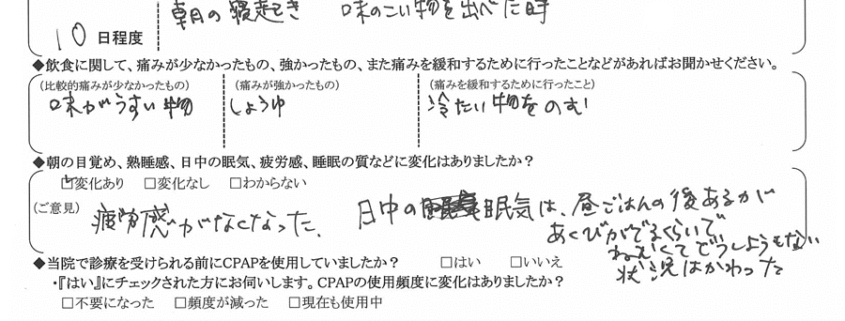 朝の寝起き 味のこい物を出べた時
10 日程度
◆飲食に関して、痛みが少なかったもの、強かったもの、また痛みを緩和するために行ったことなどがあればお聞かせください。
(比較的痛みが少なかったもの) (痛みが強かったもの) (痛みを緩和するために行ったこと)
味がうすい物 しょうゆ 冷たい物をのむ
◆朝の目覚め、熟睡感、日中の眠気、疲労感、睡眠の質などに変化はありましたか?
☑変化あり □変化なし □わからない
(ご意見) 疲労感がなくなった、 日中の眠気は、昼ごはんの後あるが
あくびがでるくらいで
ねむくてどうしようもない
状況はかわった
◆当院で診療を受けられる前にCPAPを使用していましたか? □はい □いいえ
・『はい』にチェックされた方にお伺いします。CPAPの使用頻度に変化はありましたか?
□不要になった □頻度が減った □現在も使用中